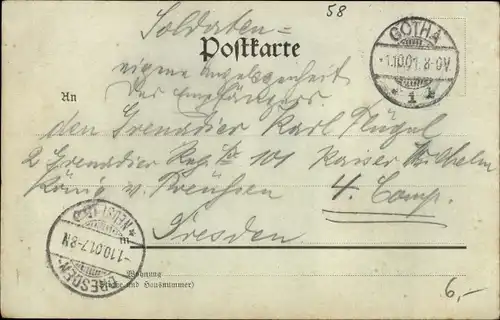 58
Soldaten=
Postkarte
eigene Angelegenheit
des Empfängers.
GOTHA
1.10.01.8-9V
* 1 *
An
den Grenadier Karl Flügel
2 Grenadier Reg. No 101 Kaiser Wilhelm
König v. Preußen 4. Comp.
Dresden
DRESDEN-NEUSTADT
1.10.01.7-8N
Wohnung
(Straße und Hausnummer)
6,-